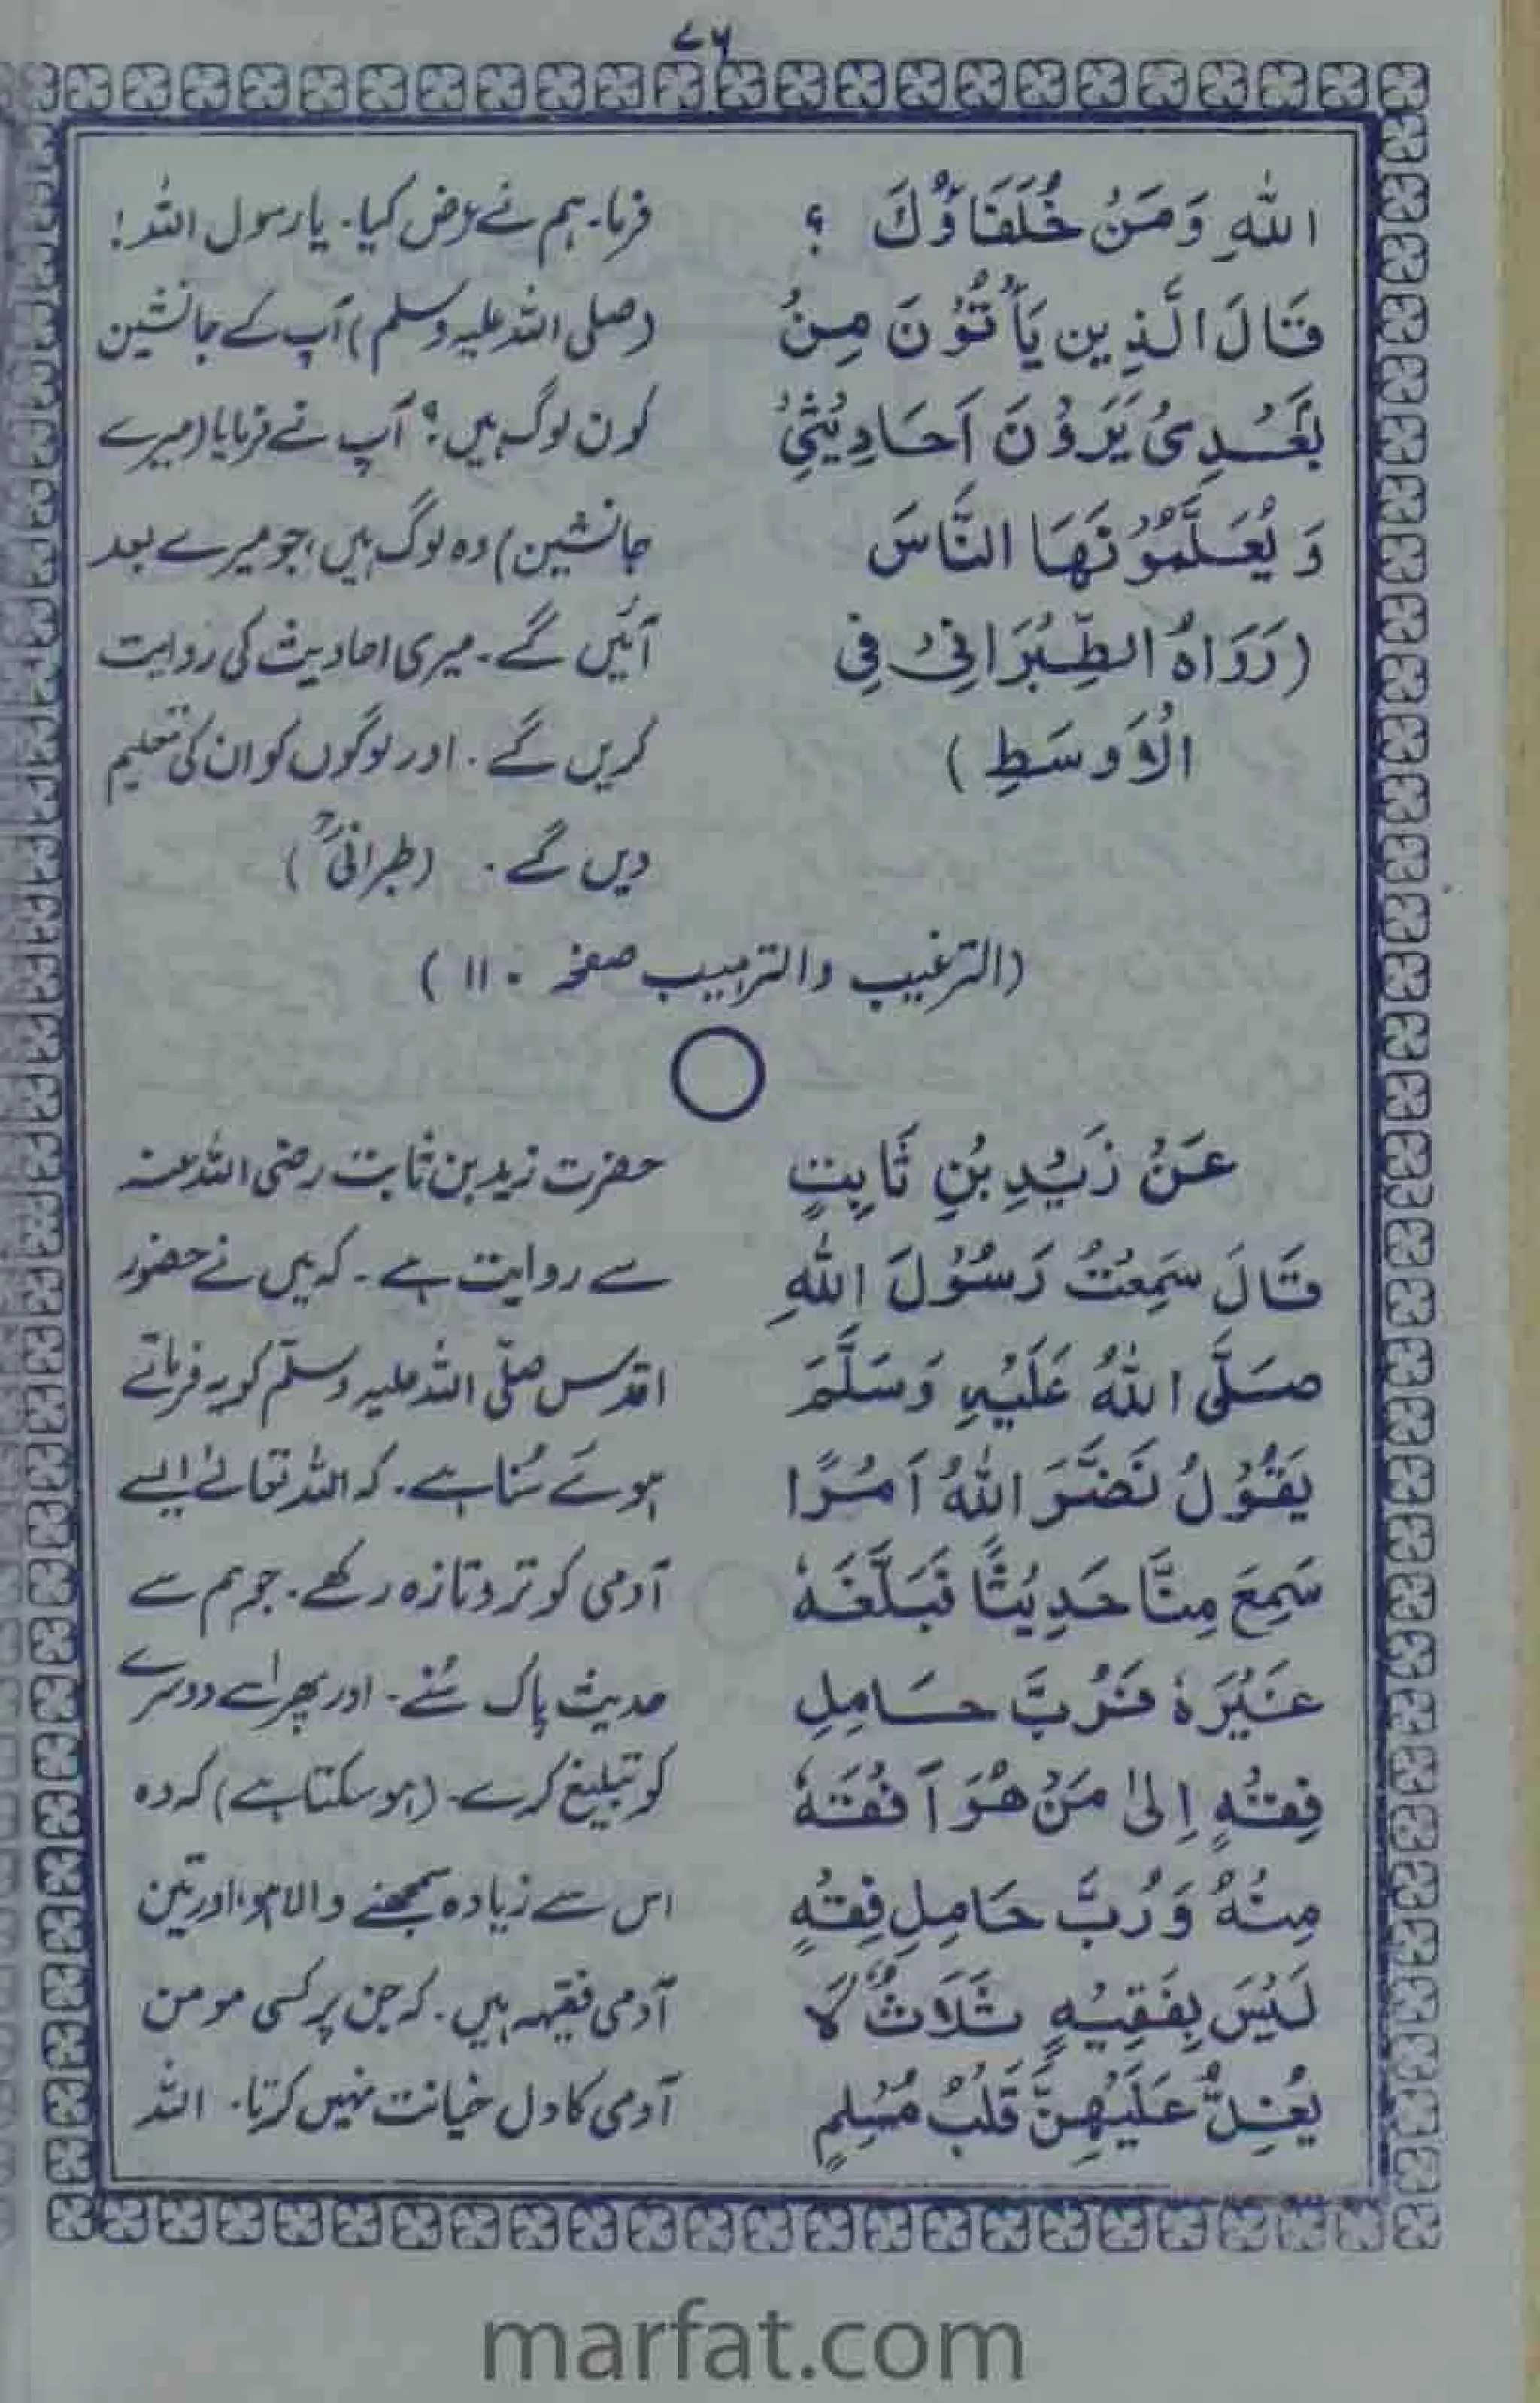 ۷۶
اللهِ وَمَنْ خُلَفَاؤُكَ ؟
قَالَ الَّذِين يَأْتُوْنَ مِنْ
بَعْدِىْ يَرَوُوْنَ اَحَادِيْثِىْ
وَ يُعَلِّمُوْنَهَا النَّاسَ
(رَوَاهُ الطِّبْرَانِىْ فِى
الْاَوسَطِ )
فرما۔ ہم نے عرض کیا۔ یا رسول اللہ !
(صلی اللہ علیہ وسلم) آپ کے جانشین
کون لوگ ہیں؟ آپ نے فرمایا (میرے
جانشین) وہ لوگ ہیں، جو میرے بعد
آئیں گے۔ میری احادیث کی روایت
کریں گے۔ اور لوگوں کو ان کی تعلیم
دیں گے۔ (طبرانیؒ)
(الترغیب والترہیب صفحہ ۱۱۰)
عَنْ زَيْدِ بْنِ ثَابِتٍ
قَالَ سَمِعْتُ رَسُوْلَ اللهِ
صَلَّى اللهُ عَلَيْهِ وَسَلَّمَ
يَقُوْلُ نَضَّرَ اللهُ اَمْرًا
سَمِعَ مِنَّا حَدِيْثًا فَبَلَّغَهٗ
غَيْرَهٗ فَرُبَّ حَامِلِ
فِقْهٍ اِلىٰ مَنْ هُوَ اَفْقَهٗ
مِنْهُ وَرُبَّ حَامِلِ فِقْهٍ
لَيْسَ بِفَقِيْهٍ ثَلَاثٌ لَا
يُغِلُّ عَلَيْهِنَّ قَلْبُ مُسْلِمٍ
حضرت زید بن ثابت رضی اللہ عنہ
سے روایت ہے۔ کہ میں نے حضور
اقدس صلّی اللہ علیہ وسلّم کو یہ فرماتے
ہوئے سُنا ہے۔ کہ اللہ تعالےٰ ایسے
آدمی کو تروتازہ رکھے۔ جو ہم سے
حدیث پاک سُنے۔ اور پھر اسے دوسرے
کو تبلیغ کرے۔ (ہو سکتا ہے) کہ وہ
اس سے زیادہ سمجھنے والا ہو، اور تین
آدمی فقیہہ ہیں۔ کہ جن پر کسی مومن
آدمی کا دل خیانت نہیں کرتا۔ اللہ
marfat.com